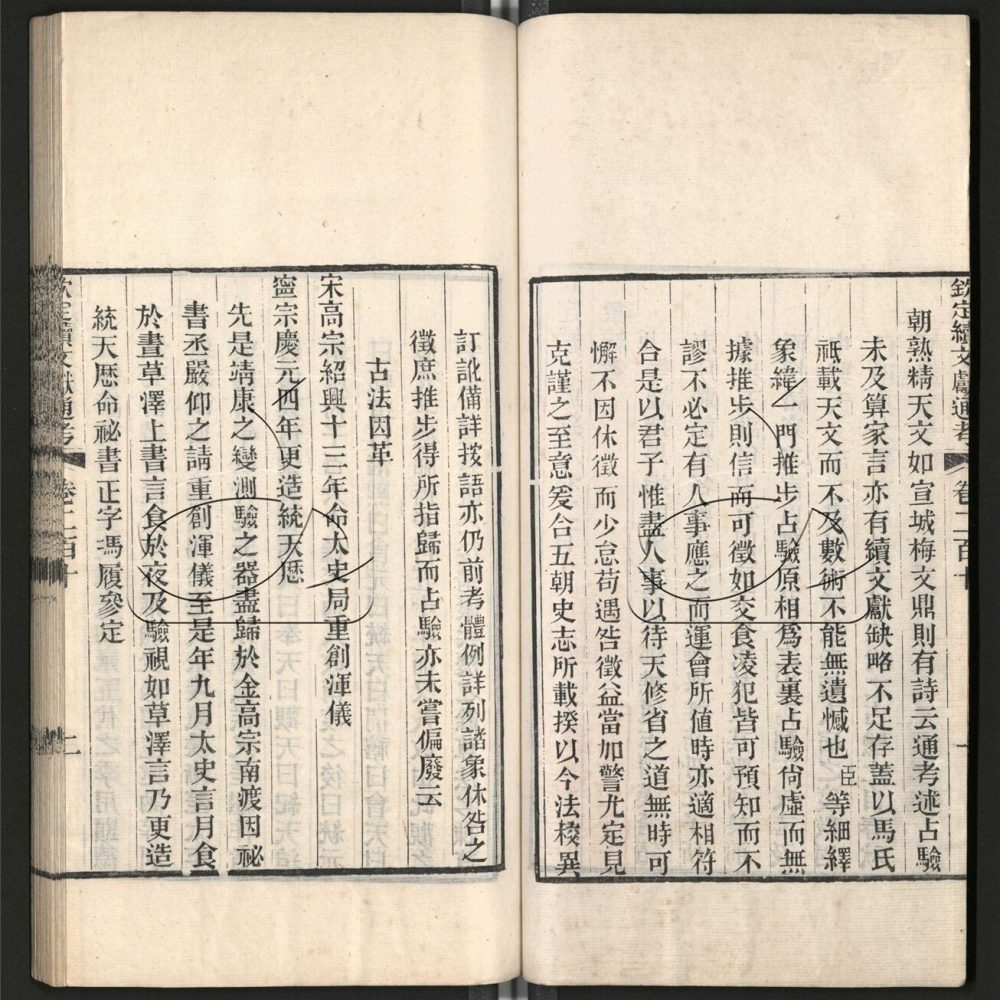 欽定續文獻通考 卷二百十
朝熟精天文如宣城梅文鼎則有詩云通考述占驗
未及算家言亦有續文獻缺略不足存蓋以馬氏
祇載天文而不及數術不能無遺憾也臣等細繹
象緯一門推步占驗原相爲表裏占驗尙虛而無
據推步則信而可徵如交食凌犯皆可預知而不
謬不必定有人事應之而運會所值時亦適相符
合是以君子惟盡人事以待天修省之道無時可
懈不因休徵而少怠苟遇咎徵益當加警尤定見
克謹之至意爰合五朝史志所載揆以今法校異
訂訛備詳按語亦仍前考體例詳列諸象休咎之
徵庶推步得所指歸而占驗亦未嘗偏廢云
古法因革
宋高宗紹興十三年命太史局重創渾儀
寧宗慶元四年更造統天厯
先是靖康之變測驗之器盡歸於金高宗南渡因祕
書丞嚴仰之請重創渾儀至是年九月太史言月食
於晝草澤上書言食於夜及驗視如草澤言乃更造
統天厯命祕書正字馮履參定
欽定續文獻通考 卷二百十